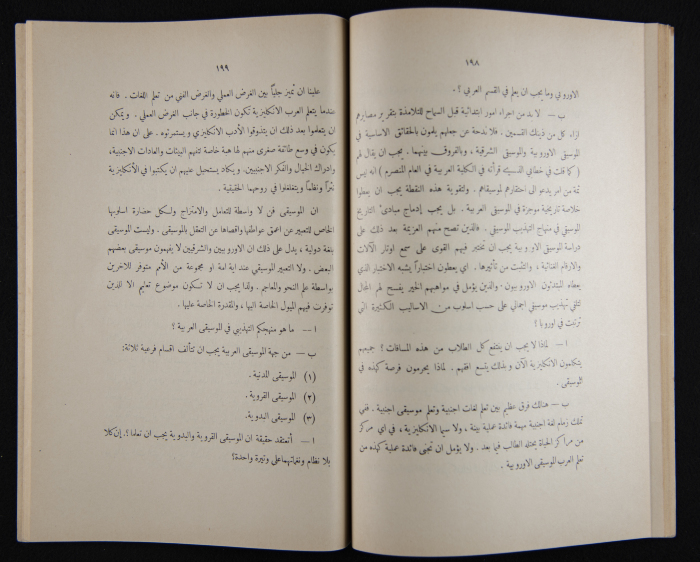 ١٩٨
الاوروبي وما يجب ان يعلم في القسم العربي ؟ .
ب – لابد من اجراء امور ابتدائية قبل السماح للتلامذة بتقرير مصايرهم
ازاء كل من ذينك القسمين . فلا بدحة عن جعلهم يلمون بالحقائق الاساسية في
الموسيقى الاوروبية والموسيقى الشرقية ، وبالفروق بينهما . يجب ان يقال لهم
( كما قلت في خطابي الذي قرأته في الكلية العربية في العام المنصرم ) انه ليس
ثمة من امر يدعو الى احتقارهم لموسيقاهم . ولتقوية هذه النقطة يجب ان يعطوا
خلاصة تاريخية موجزة في الموسيقى العربية . بل يجب إدماج مبادىء التاريخ
الموسيقي في منهاج التهذيب الموسيقي . فالذين تصح منهم العزيمة بعد ذلك على
دراسة الموسيقى الاوروبية يجب ان تختبر فيهم القوى على سمع اوتار الآلات
والارقام الغنائية ، والتثبت من تأثيرها . اي يعطون اختباراً يشبه الاختبار الذي
يعطاه المبتدئون الاوروبيون . والذين يؤمل في مواهبهم الخير يفسح لهم المجال
لتلقي تهذيب موسيقي اجمالي على حسب اسلوب من الاساليب الكثيرة التي
ترتيت في اوروبا ؟
ا – لماذا لا يجب ان ينتفع كل الطلاب من هذه المساقات ؟ جميعهم
يتكلمون الانكليزية الآن وبذلك يتسع افقهم . لماذا يحرمون فرصة كهذه في
الموسيقى .
ب – هنالك فرق عظيم بين تعلم لغات اجنبية وتعلم موسيقى اجنبية . ففي
تملك زمام لغة اجنبية مهمة فائدة عملية بينة ، ولا سيما الانكليزية ، في اي مركز
من مراكز الحياة يحتله الطالب فيما بعد . ولا يؤمل ان تجنى فائدة عملية كهذه من
تعلم العرب للموسيقى الاوروبية .
١٩٩
علينا ان نميز جلياً بين الغرض العملي والغرض الفني من تعلم اللغات . فانه
عندما يتعلم العرب الانكليزية تكون الخطورة في جانب الغرض العملي . ويمكن
ان يتعلموا بعد ذلك ان يتذوقوا الأدب الانكليزي ويستمرئوه . على ان هذا انما
يكون في وسع طائفة صغرى منهم لها هبة خاصة تتفهم البيئات والعادات الاجنبية ،
وادراك الخيال والفكر الاجنبيين . ويكاد يستحيل عليهم ان يكتبوا في الأنكليزية
نثراً ونظماً ويتغلغلوا في روحهما الحقيقية .
ان الموسيقى فن لا واسطة للتعامل والامتزاج ولكل حضارة اسلوبها
الخاص للتعبير عن اعمق عواطفها واقصاها عن التعقل بالموسيقى . وليست الموسيقى
بلغة دولية ، يدل على ذلك ان الاوروبيين والشرقيين لا يفهمون موسيقى بعضهم
البعض . ولا التعبير الموسيقي عند اية امة او مجموعة من الأمم متوفر للآخرين
بواسطة علم النحو والمعاجم . ولذا يجب ان لا تكون موضوع تعليم الا للذين
توفرت فيهم الميول الخاصة اليها ، والمقدرة الخاصة عليها .
ا – ما هو منهجكم التهذيبي في الموسيقى العربية ؟
ب – من جهة الموسيقى العربية يجب ان تتألف اقسام فرعية ثلاثة :
(١) الموسيقى المدنية .
(٢) الموسيقى القروية .
(٣) الموسيقى البدوية .
ا – أتعتقد حقيقة ان الموسيقى القروية والبدوية يجب ان نعلما ؟ . إن كلا
بلا نظام ونغماتهما على وتيرة واحدة ؟